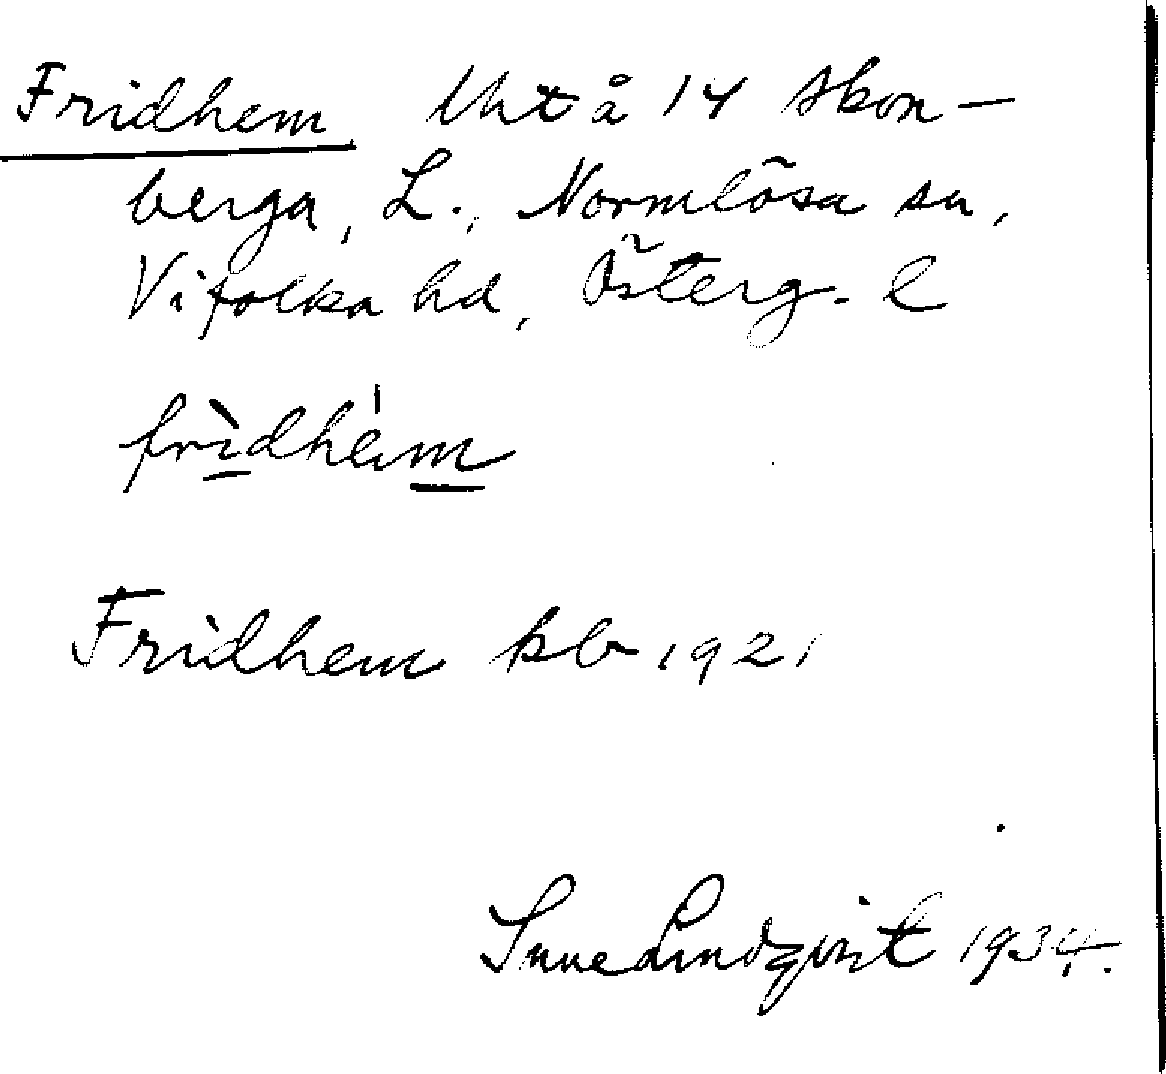 Fridhem Uht å 14 Skon-
berga, L., Normlösa sn,
Vifolka hd, Österg. l
frìdhém
Fridhem kb 1921
Sune Lindqvist 1934.